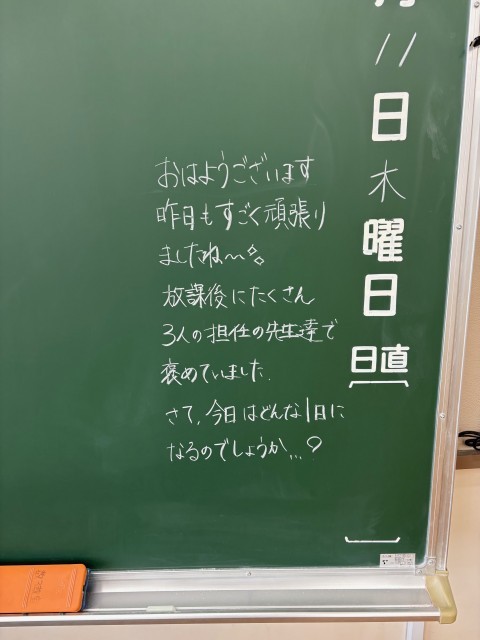 月
11
日
木
曜
日
日直
おはようございます
昨日もすごく頑張り
ましたね〜
放課後にたくさん
3人の担任の先生達で
褒めていました.
さて,今日はどんな1日に
なるのでしょうか...?